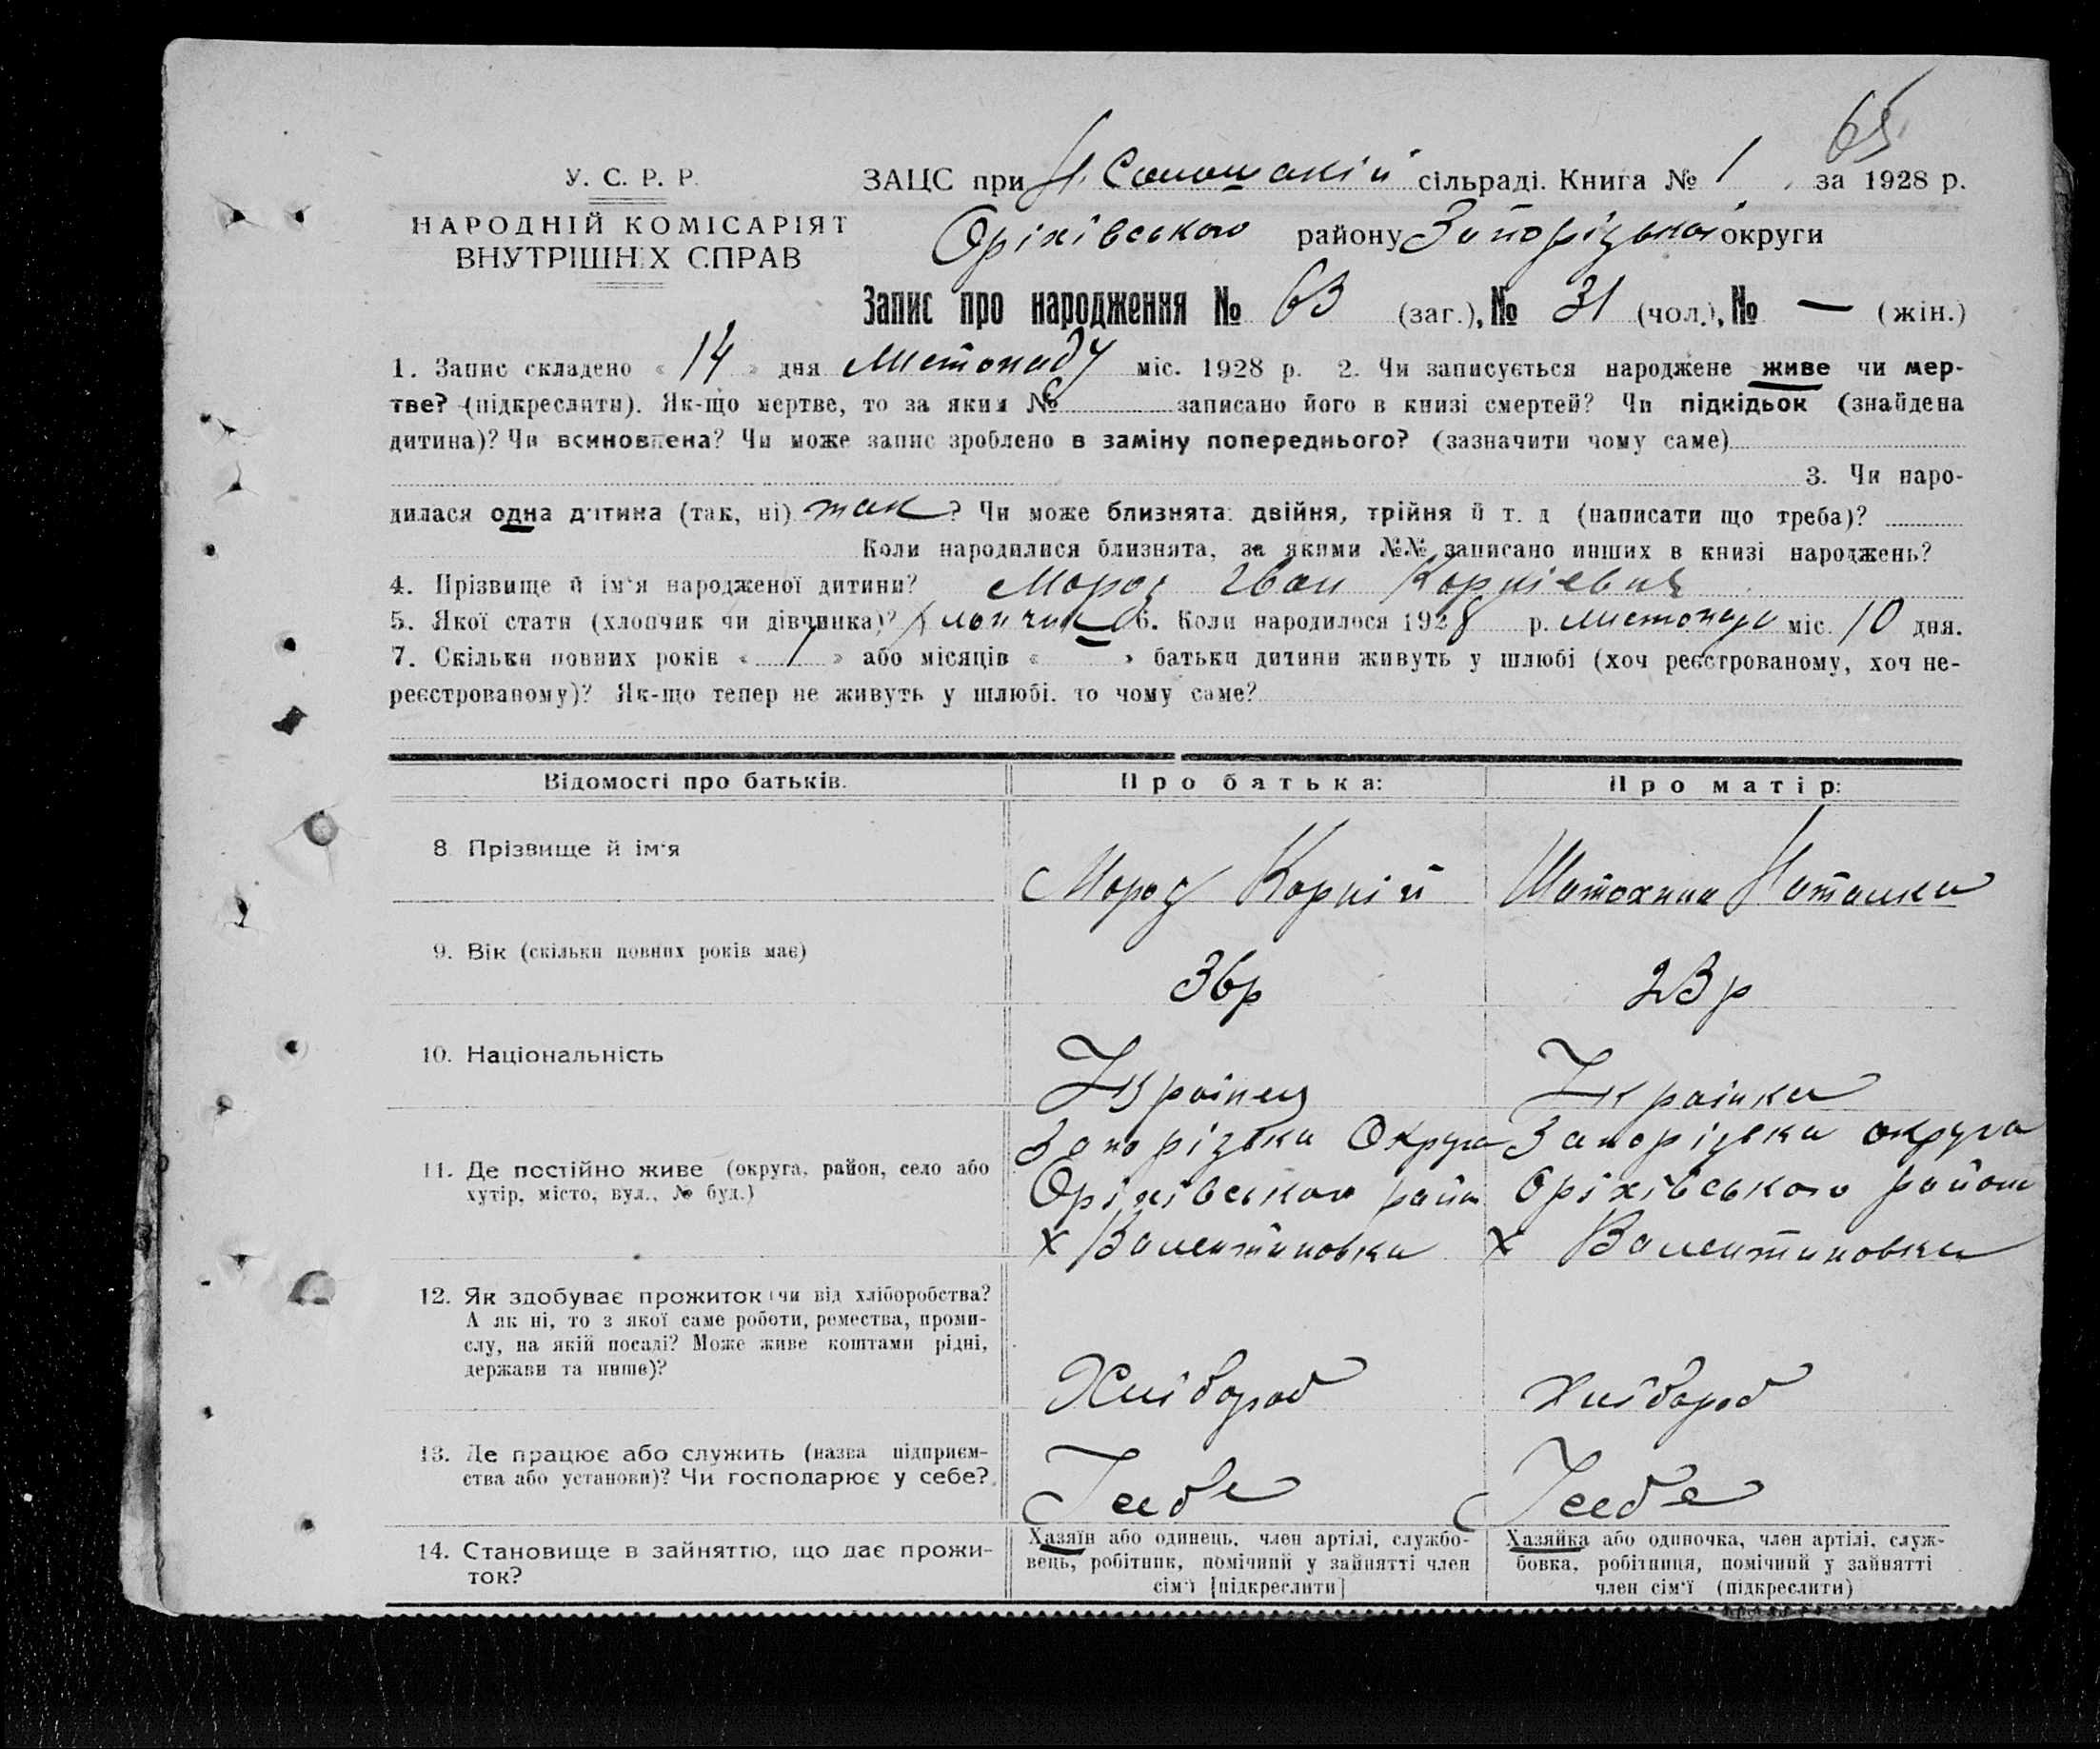 65
У. С. Р. Р.
НАРОДНІЙ КОМІСАРІЯТ
ВНУТРІШНІХ СПРАВ
ЗАЦС при сільраді. Книга № 1, за 1928 р.
Оріхівського району Запорізької округи
Запис про народження № 63 (заг.), № 31 (чол.), № — (жін.)
1. Запис складено « 14 » дня Листопаду міс. 1928 р. 2. Чи записується народжене живе чи мер-
тве? (підкреслити). Як-що мертве, то за яким № записано його в книзі смертей? Чи підкідьок (знайдена
дитина)? Чи всиновлена? Чи може запис зроблено в заміну попереднього? (зазначити чому саме)
3. Чи наро-
дилася одна дитина (так, ні) так? Чи може близнята: двійня, трійня й т. д (написати що треба)?
Коли народилися близнята, за якими №№ записано инших в книзі народжень?
4. Прізвище й ім'я народженої дитини? Мороз Іван Корнієвич
5. Якої стати (хлопчик чи дівчинка)? Хлопчик 6. Коли народилося 1928 р. Листопаду міс. 10 дня.
7. Скільки повних років « 1 » або місяців « » батьки дитини живуть у шлюбі (хоч реєстрованому, хоч не-
реєстрованому)? Як-що тепер не живуть у шлюбі. то чому саме?
Відомості про батьків.
Про батька:
Про матір:
8. Прізвище й ім'я
Мороз Корній
Шатохина Наталка
9. Вік (скільки повних років має)
36р
23р
10. Національність
Українец
Українка
11. Де постійно живе (округа, район, село або
хутір, місто, вул., № буд.)
Запорізька Округа
Оріхівського район
х Валентиновка
Запорізька округа
Оріхівського район
х Валентиновка
12. Як здобуває прожиток (чи від хліборобства?
А як ні, то з якої саме роботи, ремества, проми-
слу, на якій посаді? Може живе коштами рідні,
держави та инше)?
Хлібороб
Хлібороб
13. Де працює або служить (назва підприєм-
ства або установи)? Чи господарює у себе?
У себе
У себе
14. Становище в зайняттю, що дає прожи-
ток?
Хазяїн або одинець, член артілі, службо-
вець, робітник, помічний у зайнятті член
сім'ї [підкреслити]
Хазяйка або одиночка, член артілі, служ-
бовка, робітниця, помічний у зайнятті
член сім'ї (підкреслити)